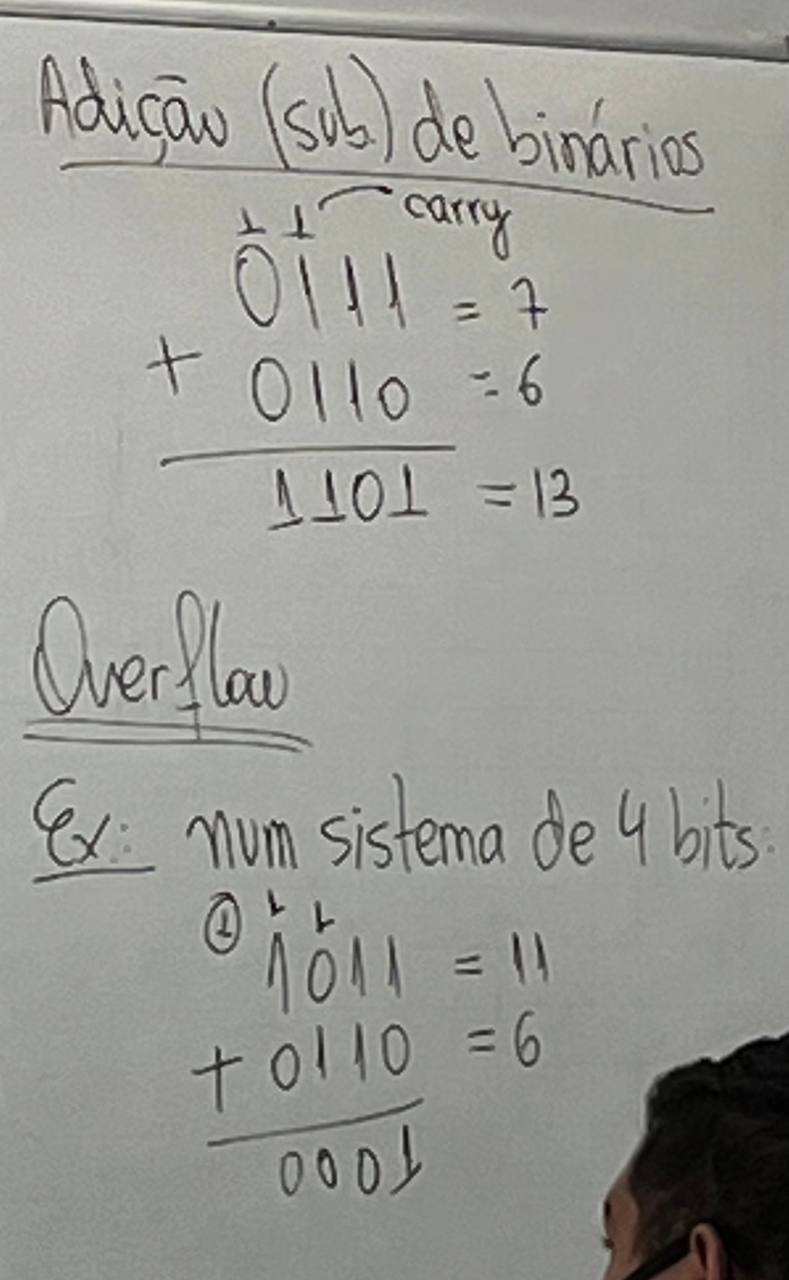 Adição (sub.) de binários
1 1 carry
0111 = 7
+ 0110 = 6
1101 = 13
Overflow
Ex: num sistema de 4 bits:
① 1 1
1011 = 11
+ 0110 = 6
0001